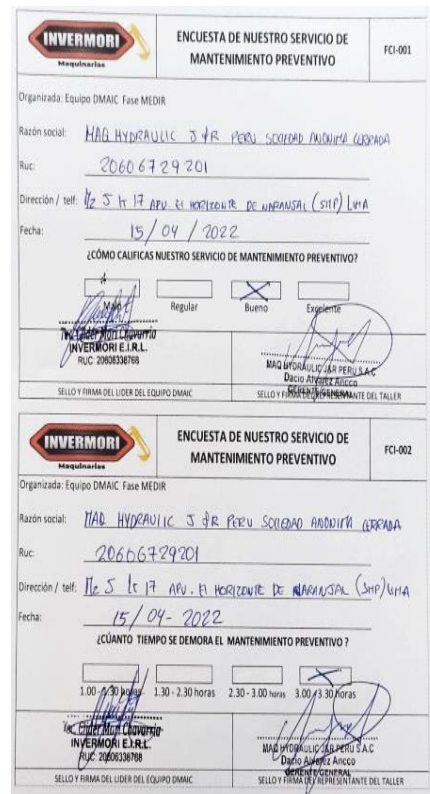 INVERMORI
Maquinarias
ENCUESTA DE NUESTRO SERVICIO DE
MANTENIMIENTO PREVENTIVO
FCI-001
Organizada: Equipo DMAIC Fase MEDIR
Razón social: MAQ HYDRAULIC J &R PERU SOCIEDAD ANONIMA CERRADA
Ruc: 20606729201
Dirección / telf: Mz J lt 17 APV. El HORIZONTE DE NARANJAL (SMP) LIMA
Fecha: 15/04/2022
¿CÓMO CALIFICAS NUESTRO SERVICIO DE MANTENIMIENTO PREVENTIVO?
Malo Regular Bueno Excelente
Elder Mori Chavarria
INVERMORI E.I.R.L.
RUC. 20606338768
MAQ HYDRAULIC J&R PERU S.A.C
Dacio Alvarez Ancco
GERENTE GENERAL
SELLO Y FIRMA DEL LIDER DEL EQUIPO DMAIC
SELLO Y FIRMA DEL REPRESENTANTE DEL TALLER
INVERMORI
Maquinarias
ENCUESTA DE NUESTRO SERVICIO DE
MANTENIMIENTO PREVENTIVO
FCI-002
Organizada: Equipo DMAIC Fase MEDIR
Razón social: MAQ HYDRAULIC J &R PERU SOCIEDAD ANONIMA CERRADA
Ruc: 20606729201
Dirección / telf: Mz J lt 17 APV. El HORIZONTE DE NARANJAL (SMP) LIMA
Fecha: 15/04-2022
¿CÚANTO TIEMPO SE DEMORA EL MANTENIMIENTO PREVENTIVO ?
1.00 - 1.30 horas 1.30 - 2.30 horas 2.30 - 3.00 horas 3.00 - 3.30 horas
Elder Mori Chavarria
INVERMORI E.I.R.L.
RUC. 20606338768
MAQ HYDRAULIC J&R PERU S.A.C
Dacio Alvarez Ancco
GERENTE GENERAL
SELLO Y FIRMA DEL LIDER DEL EQUIPO DMAIC
SELLO Y FIRMA DEL REPRESENTANTE DEL TALLER